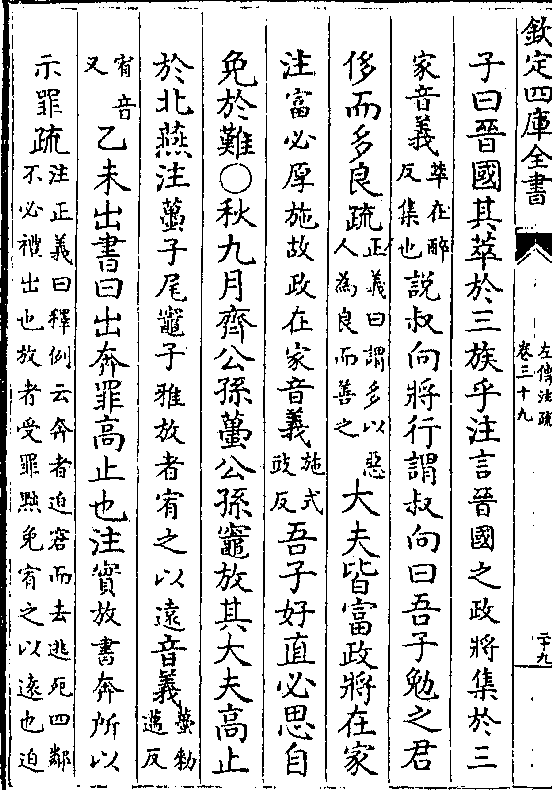 欽定四庫全書
左傳注疏
卷三十九
二十九
子曰晉國其萃於三族乎注言晉國之政將集於三
家音義萃在醉反集也說叔向將行謂叔向曰吾子勉之君
侈而多良疏正義曰謂多以惡人為良而善之大夫皆富政將在家
注富必厚施故政在家音義施式豉反吾子好直必思自
免於難○秋九月齊公孫蠆公孫竈放其大夫高止
於北燕注蠆子尾竈子雅放者宥之以遠音義蠆勑邁反
宥音又乙未出書曰出奔罪高止也注實放書奔所以
示罪疏注正義曰釋例云奔者迫窘而去逃死四鄰不必禮出也放者受罪黜免宥之以遠也迫